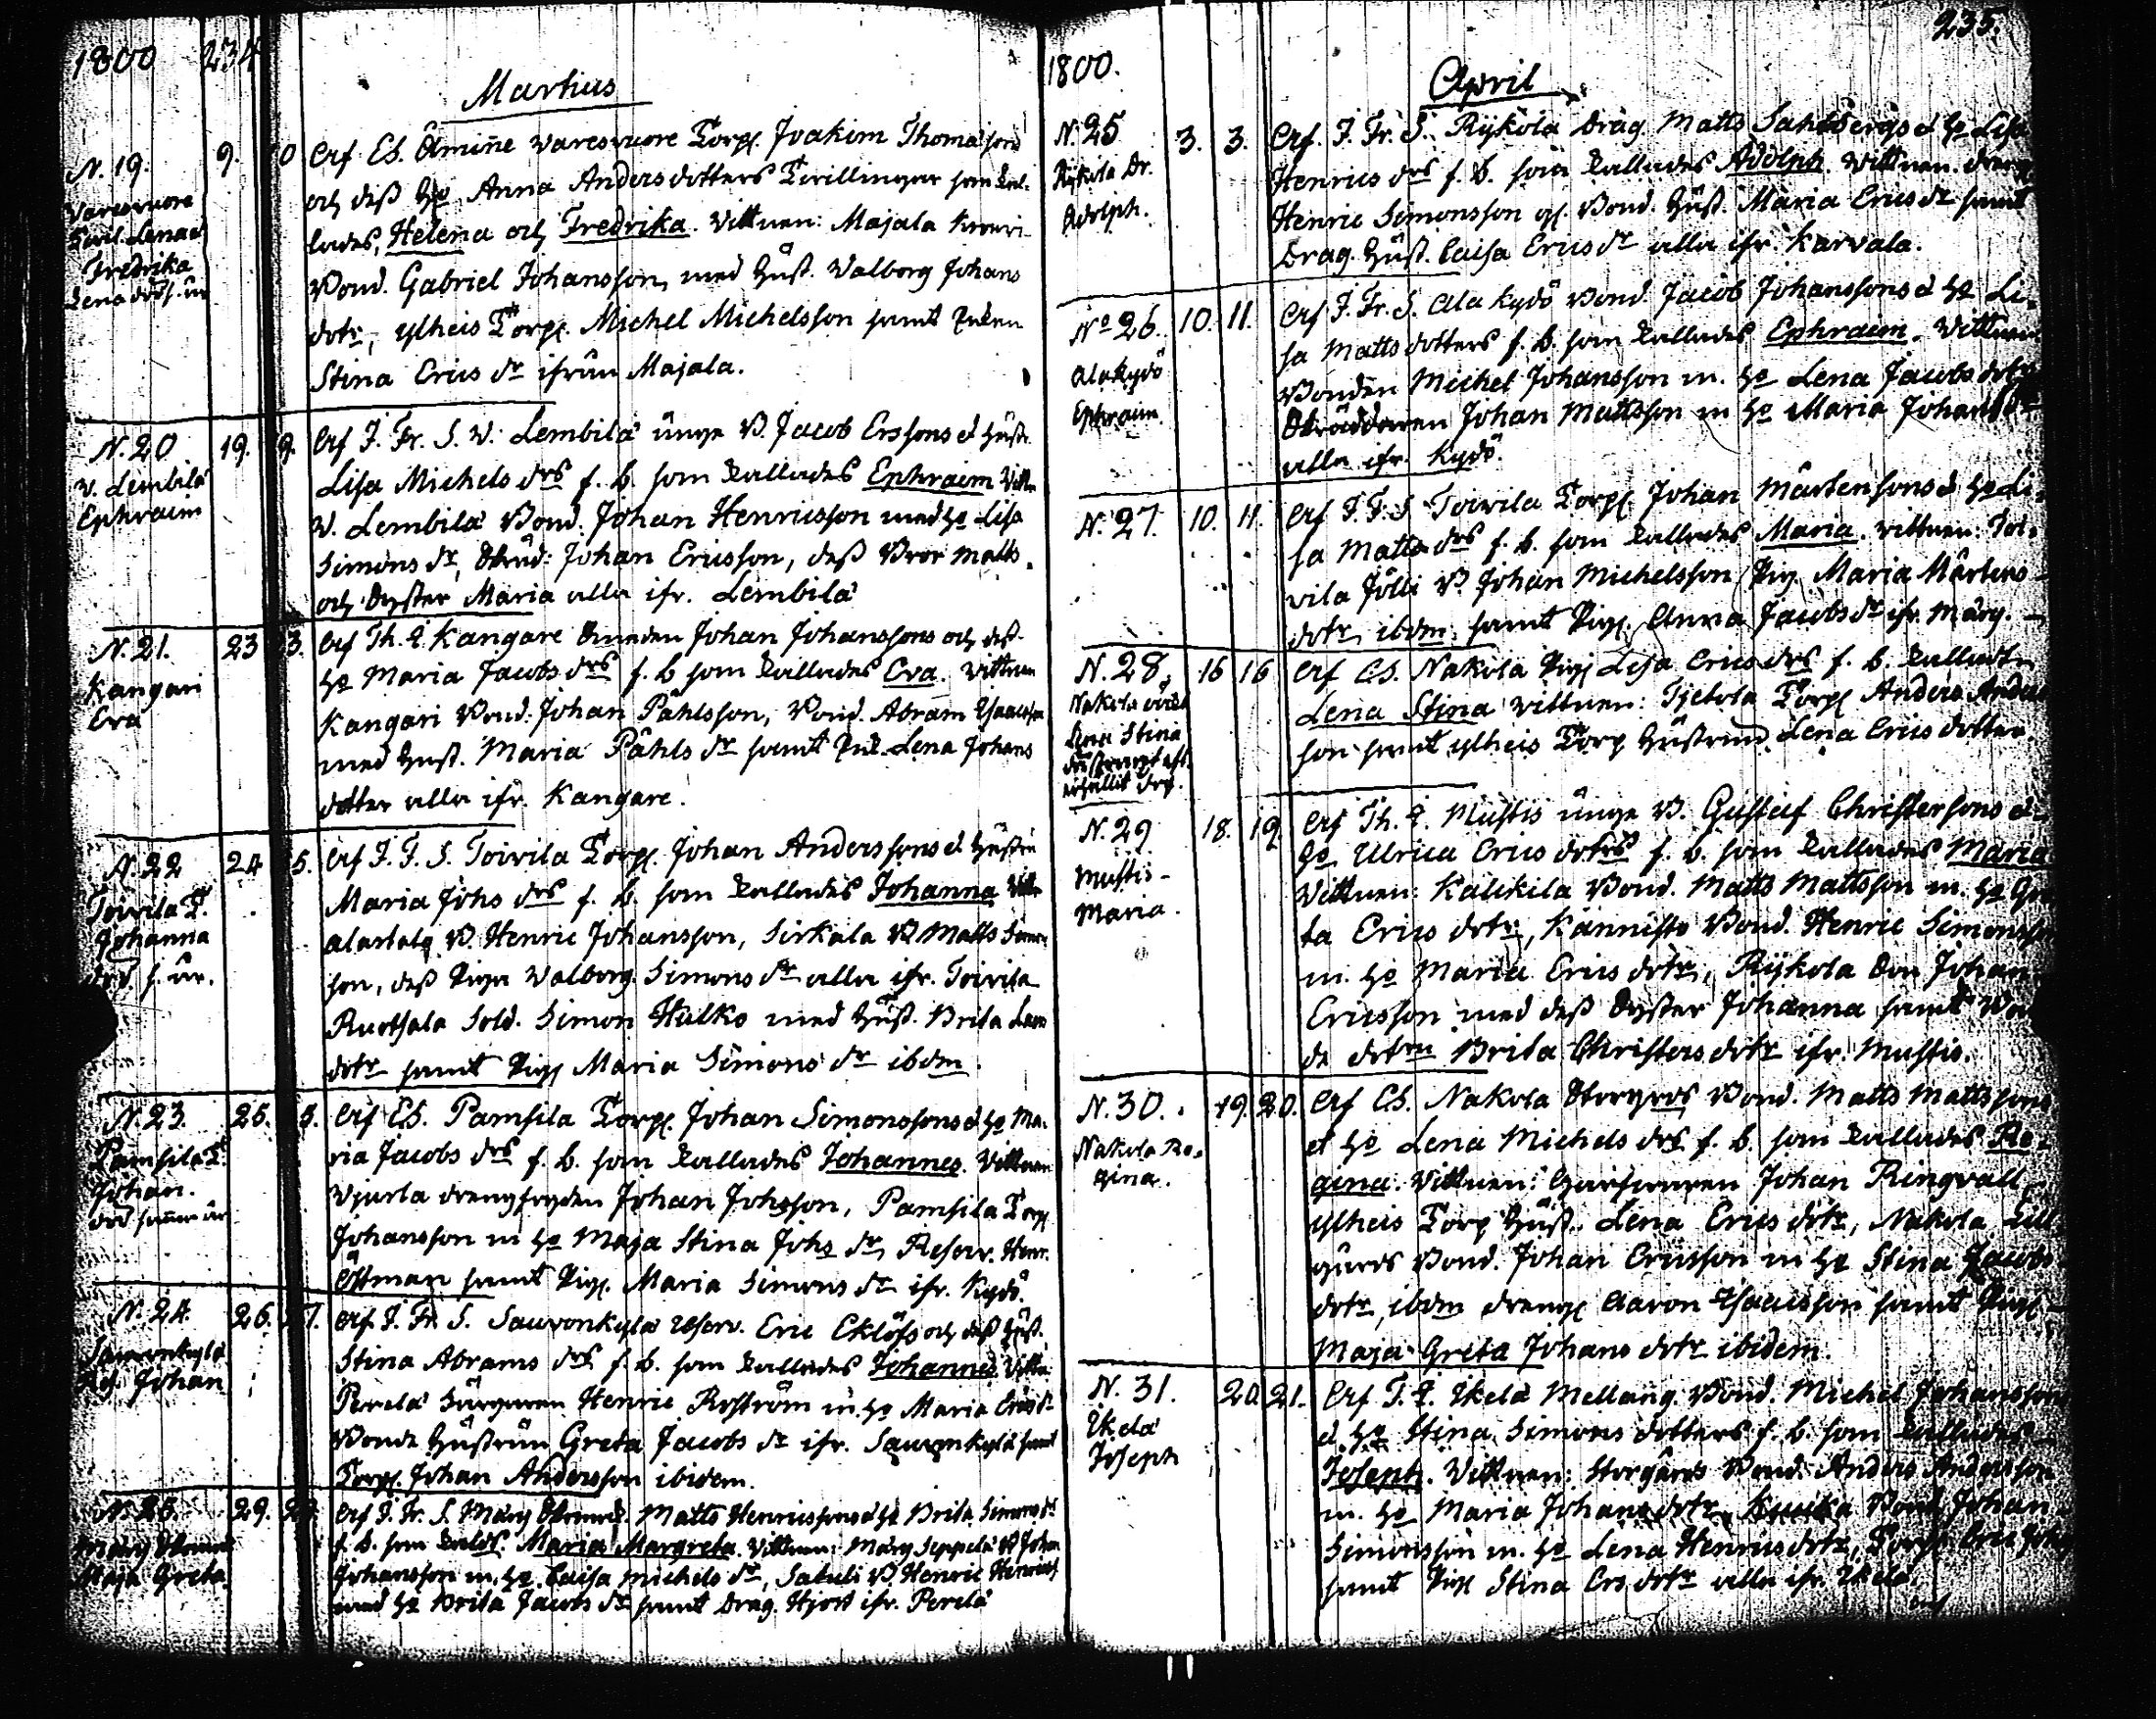 1800 234
Martius
N. 19. 9. 10
Varesvuore
Tvil. Lena &
Fredrika
Lena död s. år
Af Es. Åminne Varesvuore Torp. Joakim Thomæsons
och dess Ho Anna Andersdotters Tvillingar som kal-
lades, Helena och Fredrika. Vittnen: Majala
Bond. Gabriel Johansson, med Hust. Valborg Johans
dotr, ytheis Torp. Michel Michelsson samt Enkan
Stina Erics dr ifrån Majala.
N. 20 19. 19.
V. Lembilä
Ephraim
Af J. Fr. S. V. Lembilä unge B. Jacob Erssons & Hustr.
Lisa Michels drs f. b. som kallades Ephraim Vittn
V. Lembilä Bond. Johan Henricsson med Ho Lisa
Simons dr, Johan Ericsson, dess Bror Matts
och Syster Maria alla ifr. Lembilä
N. 21. 23 23.
Kangari
Eva
Af Th. Kangare Smeden Johan Johanssons och dess
Ho Maria Jacobs drs f. b som kallades Eva. Vittnen
Kangari Bond. Johan Påhlsson, Bond. Abram Isaacsson
med Hust. Maria Påhls dr samt Enk. Lena Johans
dotter alla ifr. Kangare.
N. 22 24 25.
Toivila T.
Johanna
död s. år.
Af J. F. S. Toivila Torp. Johan Anderssons & Hustru
Maria Johs drs f. b. som kallades Johanna Vittn
Alastalo B. Henric Johansson, Sirkala B Matts Simons
son, dess Piga Valborg Simons dr alla ifr. Toivila
Ruotsala Sold. Simon Hulko med Hust. Brita
dotr samt Pig. Maria Simons dr ibdm.
N. 23. 25.
Pamsila T.
Johan.
död samma år
Af Es. Pamsila Torp. Johan Simonssons & Ho Ma-
ria Jacobs drs f. b. som kallades Johannes. Vittnen
Johan Johsson, Pamsila Torp
Johansson m Ho Maja Stina Johs dr, Reserv. Henr.
Östman samt Pig. Maria Simons dr ifr. Kydö.
N. 24. 26. 27.
Sauvonkylä
Johan
Af J. Fr. S. Sauvonkylä Reserv. Eric Eklöfs och dess Hust.
Stina Abrams drs f. b. som kallades Johannes Vittn
Perelä Henric Roström m. Ho Maria Erics dr
Bonde Hustrun Greta Jacobs dr ifr. Sauvonkylä samt
Torp. Johan Andersson ibidem.
29.
Maja Greta
Af J. Fr. S. Märy Matts Henricssons & Ho Brita Simons drs
f. b. som kalds Maria Margreta. Vittnen: Märy Seppelä B Johan
Johansson m. Ho Caisa Michels dr, Sakuli B Henric Henrics
med Ho Brita Jacobs dr samt Drag. Hjort ifr. Perelä
1800. 235.
April
N. 25 3. 3.
Rykola Dr.
Adolph.
Af. J. Fr. S. Rykola Drag. Matts Sahlbergs & Ho Lisa
Henrics drs f. b. som kallades Adolph. Vittnen. Dreng
Henric Simonsson och Bond. Hust. Maria Erics dr samt
Drag. Hust. Caisa Erics dr alla ifr. Karvala.
No 26. 10. 11.
Alakydö
Ephraim.
Af J. Fr. S. Ala Kydö Bond Jacob Johanssons & Ho Li-
sa Mattsdotters f. b. som kallades Ephraim. Vittnen
Bonden Michel Johansson m. Ho Lena Jacobsdotr
Skräddaren Johan Mattsson m Ho Maria Johans dr
alla ifr. Kydö.
N. 27. 10. 11.
Af J. F. S Toivila Torp. Johan Mårtensons & Ho Li-
sa Matts drs f. b. som kallades Maria. Vittnen: Toi-
vila Jölli B Johan Michelsson Pig. Maria Mårtens-
dotr, ibdm samt Pig. Anna Jacobs dr ifr. Märy.
N. 28. 16 16
Nakola
Lena Stina
Af Es. Nakola Pig. Lisa Erics drs f. b. kalladts
Lena Stina Vittnen: Tjetola Torp. Anders Anders
son samt ytheis Torp Hustrun Lena Erics dotter.
N. 29 18. 19.
Mustis-
Maria.
Af Th. Mustis unge B. Gustaf Christersons &
Ho Ulrica Erics dotrs f. b. som kallades Maria
Vittnen: Kalikila Bond. Matts Mattsson m. Ho Gre
ta Erics dotr, Kännistö Bond. Henric Simonsson
m. Ho Maria Erics dotr, Rykola Son Johan
Ericsson med dess Syster Johanna samt Bon
de dotrn Brita Christers dotr ifr. Mustis.
N. 30. 19. 20.
Nakola Re-
gina.
Af Es. Nakola Storgårds Bond. Matts Mattssons
et Ho Lena Michels drs f. b. som kallades Re-
gina. Vittnen: Johan Ringvall
ytheis Torp Hust. Lena Erics dotr, Nakola Lill
gårds Bond. Johan Ericsson m Ho Stina Jacobs
dotr, ibdm dreng. Aaron Isaacsson samt Pig.
Maja Greta Johans dotr ibidem.
N. 31. 20. 21.
Ikelä
Joseph
Af T. Ikelä Mellang. Bond. Michel Johanssons
& Ho Stina Simons dotters f. b. som kallades
Joseph. Vittnen: Storgårds Bond. Anders Andersson
m. Ho Maria Johans dotr, Bond Johan
Simonsson m. Ho Lena Henricsdotr, Torp. Eric
samt Pig. Stina Ers dotr alla ifr. Ikelä.